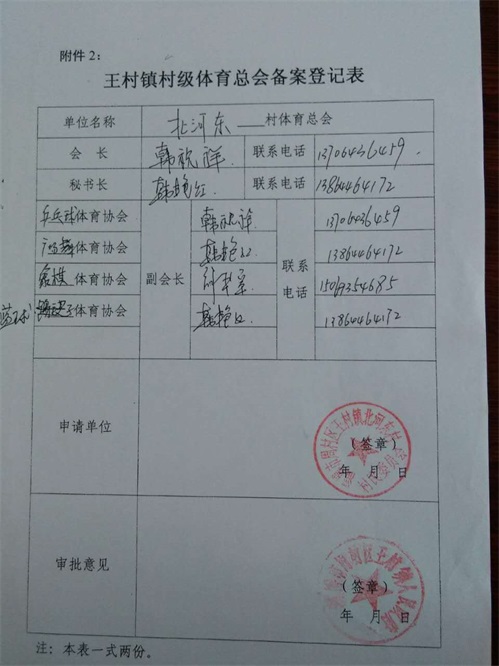 附件2：
王村镇村级体育总会备案登记表
单位名称 北河东 村体育总会
会 长 韩祝祥 联系电话 13706436459
秘书长 韩艳红 联系电话 13864464172
乒乓球体育协会 韩祝祥 13706436459
广场舞体育协会 韩艳红 13864464172
象棋体育协会
篮球 体育协会 韩艳红 13864464172
副会长
联系
电话
申请单位
（签章）
年 月 日
审批意见
（签章）
年 月 日
注：本表一式两份。